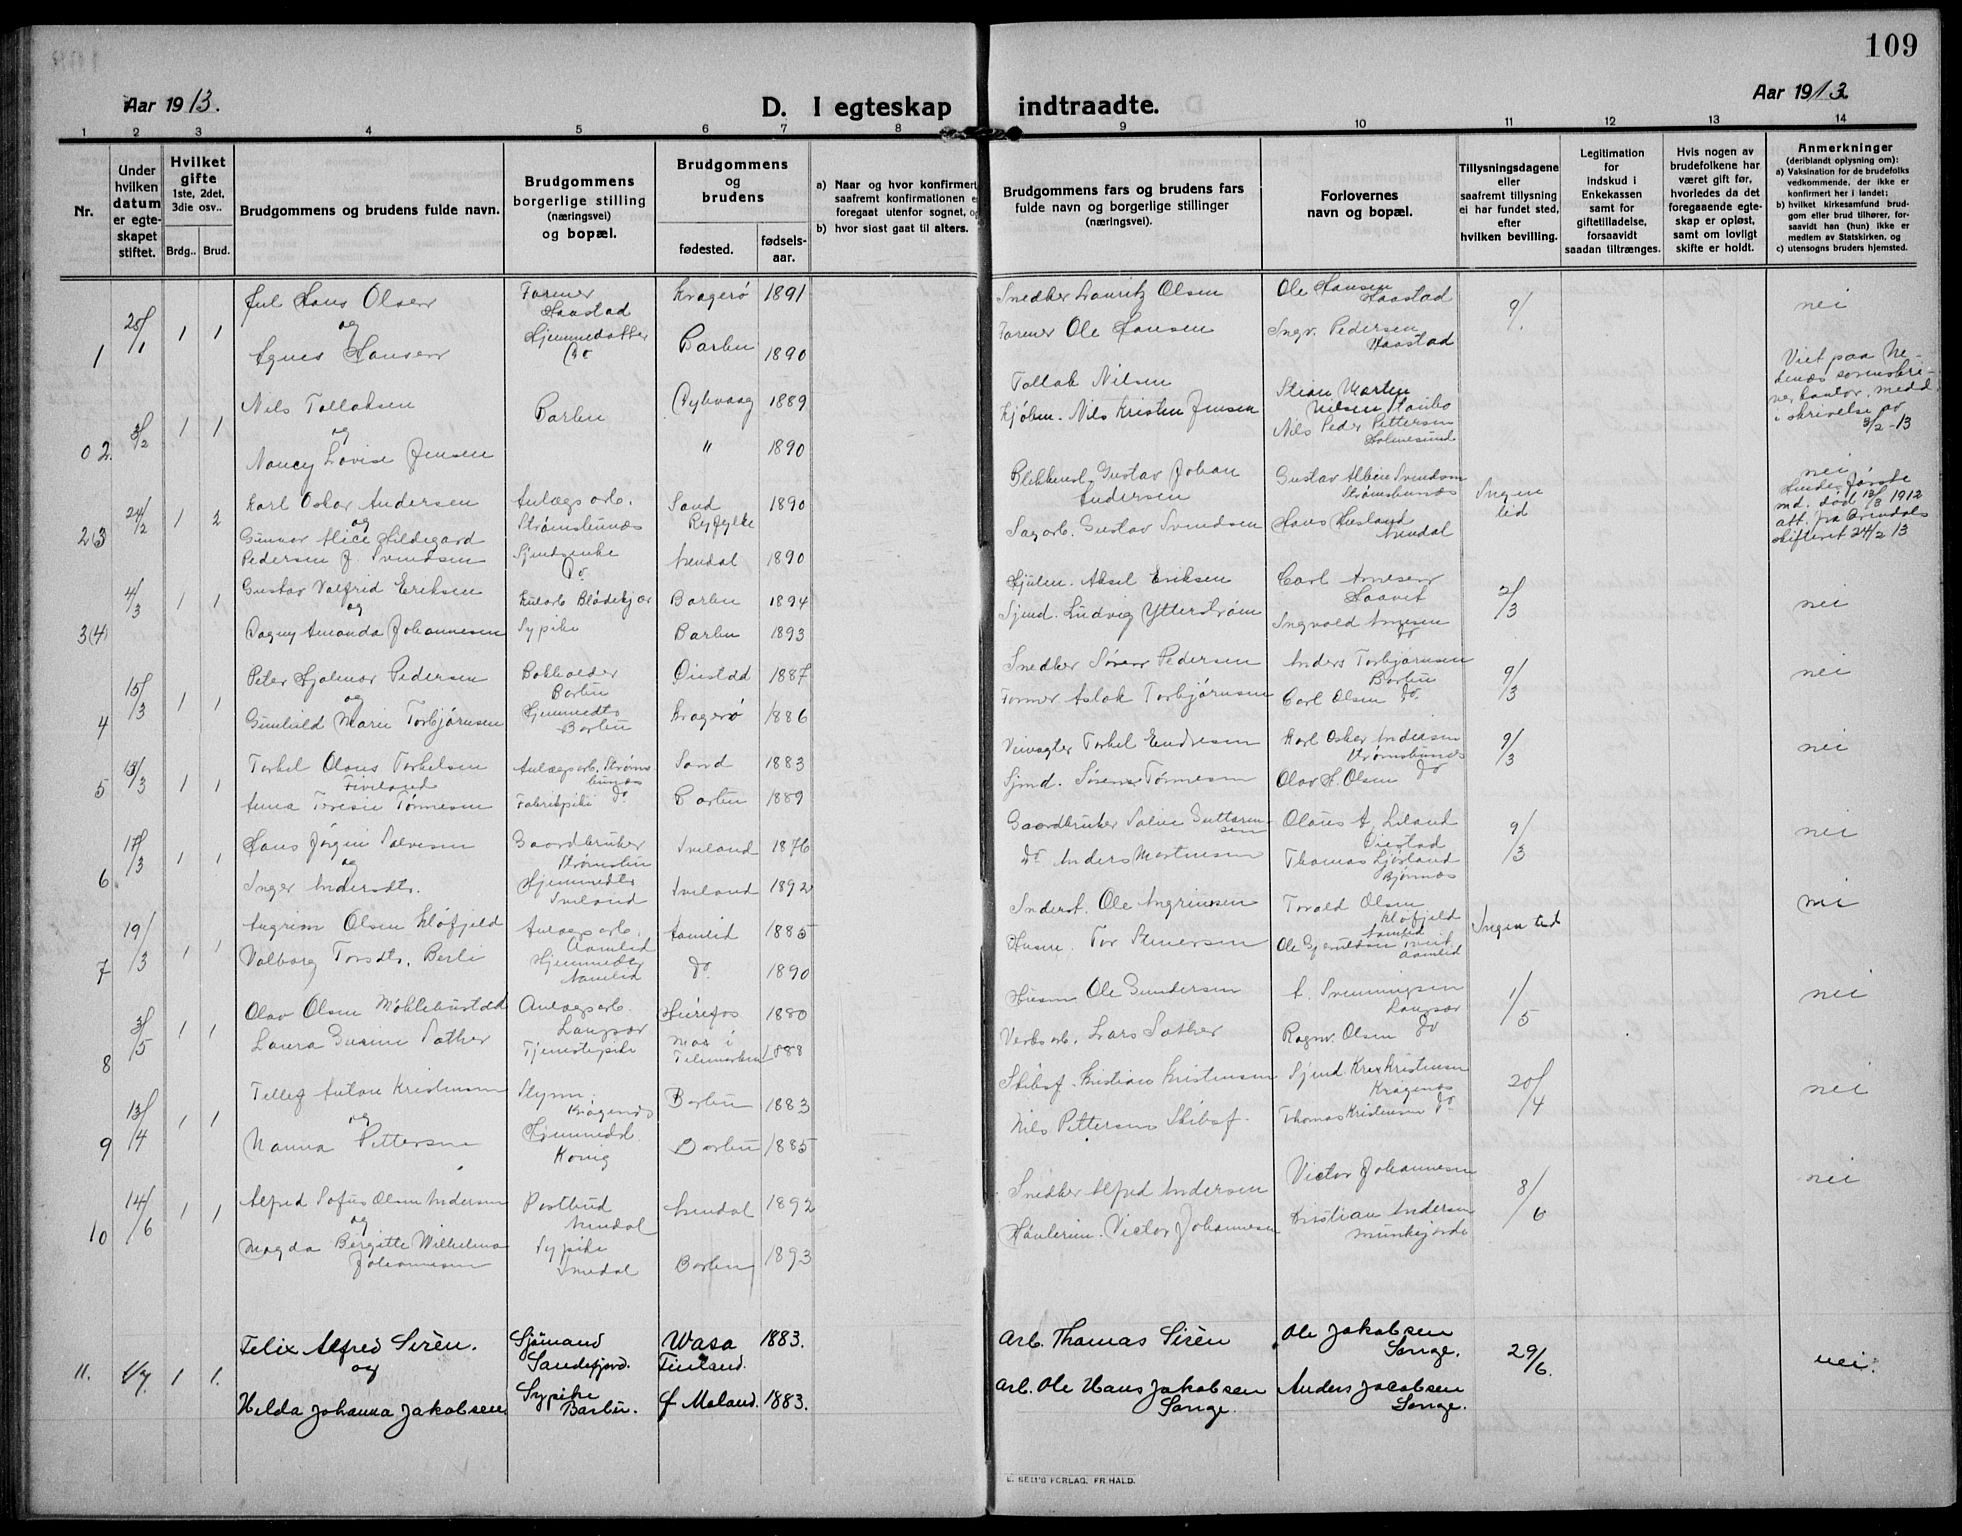 109
Aar 1913.
D. I egteskap indtraadte.
Aar 1913
1 2 3 4 5 6 7 8 9 10 11 12 13 14
Nr.
Under hvilken datum er egteskapet stiftet.
Hvilket gifte
1ste, 2det, 3die osv..
Brdg.. Brud.
Brudgommens og brudens fulde navn.
Brudgommens borgerlige stilling (næringsvei) og bopæl.
Brudgommens og brudens
fødested. fødselsaar.
a) Naar og hvor konfirmert
saafremt konfirmationen e
foregaat utenfor sognet, o
b) hvor sidst gaat til alters.
Brudgommens fars og brudens fars
fulde navn og borgerlige stillinger
(næringsvei).
Forlovernes
navn og bopæl.
Tillysningsdagene
eller
saafremt tillysning
ei har fundet sted,
efter
hvilken bevilling.
Legitimation
for
indskud i
Enkekassen
samt for
giftetilladelse,
forsaavidt
saadan tiltrænges.
Hvis nogen av
brudefolkene har
været gift før,
hvorledes da det
foregaaende egte-
skap er opløst,
samt om lovligt
skifte er holdt.
Anmerkninger
(deriblandt oplysning om):
a) Vaksination for de brudefolks
vedkommende, der ikke er
konfirmert her i landet;
b) hvilket kirkesamfund brud-
gom eller brud tilhører, for-
saavidt han (hun) ikke er
medlem av Statskirken, og
c) utensogns bruders hjemsted.
1 1 1 Jul Hans Olsen Farmer Haastad Kragerø 1891 Snedker Lauritz Olsen Ole Hansen Haastad 9/. nei
og
Agnes Hansen Hjemmedatter Do Barbu 1890 Farmer Ole Hansen Ingv. Pedersen Haastad
02 3/2 1 1 Nils Tallaksen Barbu Dybvaag 1889 Tallak Nilsen Stian Martin Nilsen
og
Nancy Lovise Jensen " 1890 Nils Kristen Jensen Nils Peder Pettersen Holmesund
Viet paa Ne-
denæs sorenskri-
verkontor, medd.
i skrivelse av
3/2-13
2(3 24/2 1 2 Karl Oskar Andersen Anlægsarb. Strømsbunæs Sand Ryfylke 1890 Blikkensl. Gustav Johan Andersen Gustav Albin Svendsen Strømsbunæs Ingen tid nei
og
Gunvor Alice Hildegard
Pedersen f. Svendsen Sjmdsenke Do Arendal 1890 Sagarb. Gustav Svendsen Hans Husland Arendal
Hendes første
md. død 13/3 1912
att. fra Arendals
skifteret 24/2 13
3(4) 4/3 1 1 Gustav Valfrid Eriksen Kularb Blødekjær Barbu 1894 Aksel Eriksen Carl Arnesen Haavet 2/3 nei
og
Dagny Amanda Johannesen Sypike Barbu 1893 Sjmd. Ludvig Ytterstrøm Ingvald Arnesen do
4 15/3 1 1 Peter Hjalmar Pedersen Bokholder Barbu Øiestad 1887 Snedker Søren Pedersen Anders Torbjørnsen Barbu 9/3 nei
og
Gunhild Marie Torbjørnsen Hjemmedtr Barbu Kragerø 1886 Former Aslak Torbjørnsen Carl Olsen do.
5 13/3 1 1 Torkel Olaus Torkelsen Fiveland Anlægsarb. Strømsbunæs Sand 1883 Veivogter Torkel Endresen Karl Oskar Andersen Strømsbunæs 9/3 nei
Anna Teresie Tønnesen Fabrikpike do Barbu 1889 Sjmd. Søren Tønnesen Olav A. Olsen do
6 17/3 1 1 Hans Jørgen Salvesen Gaardbruker Strømsbu Iveland 1876 Gaardbruker Salve Guttormsen Olaus A. Liland Øiestad 9/3 nei
og
Inger Andersdtr. Hjemmedtr Iveland Iveland 1892 do Anders Mortensen Thomas Ljøsland Bjønnes
7 19/3 1 1 Angrim Olsen Kløfjeld Anlægsarb. Aamlid Aamlid 1885 Inderst. Ole Angrimsen Torald Olsen Kløfjeld Aamlid Ingen tid nei
Valborg Torsdtr. Berli Hjemmedtr Aamlid do. 1890 Husm. Tor Ole Gjeruldsen Tveit Aamlid
8 3/5 1 1 Olav Olsen Møklebustdd Anlægsarb. Langsæ Herefos 1880 Husm Ole Gundersen A. Svenningsen Langsæ 1/5 nei
Laura Gurine Sæther Tjenestepike næs i Telemarken 1888 Verksarb. Lars Sæther Ragnv. Olsen do
9 13/4 1 1 Tellef Anton Kristensen Styrm. Kragenæs Barbu 1883 Skibsf. Kristian Kristensen Sjmd. Kristensen Kragenæs 20/4 nei
og
Nanna Pettersen Hjemmedd. Kovig Barbu 1885 Nils Pettersen Skibsf. Thomas Kristensen do
10 14/6 1 1 Alfred Sofus Olsen Andersen Postbud Arendal Arendal 1892 Snedker Alfred Andersen Victor Johannesen 8/6 nei
og
Magda Bergitte Wilhelmo Johannesen Sypike Arendal Barbu 1893 Høvlerim. Victor Johannesen Kristian Andersen Munkejorde
11. 1/7. 1 1. Felix Alfred Sirèn. Sjømand Sandefjord. Wasa Finland. 1883. Arb. Thomas Sirèn Ole Jakobsen Songe. 29/6. nei.
og
Hilda Johanna Jakobsen Sypike Barbu. f Moland. 1883. Arb. Ole Hans Jakobsen Songe. Anders Jacobsen Songe.
E. SEM'S FORLAG. FR.HALD.